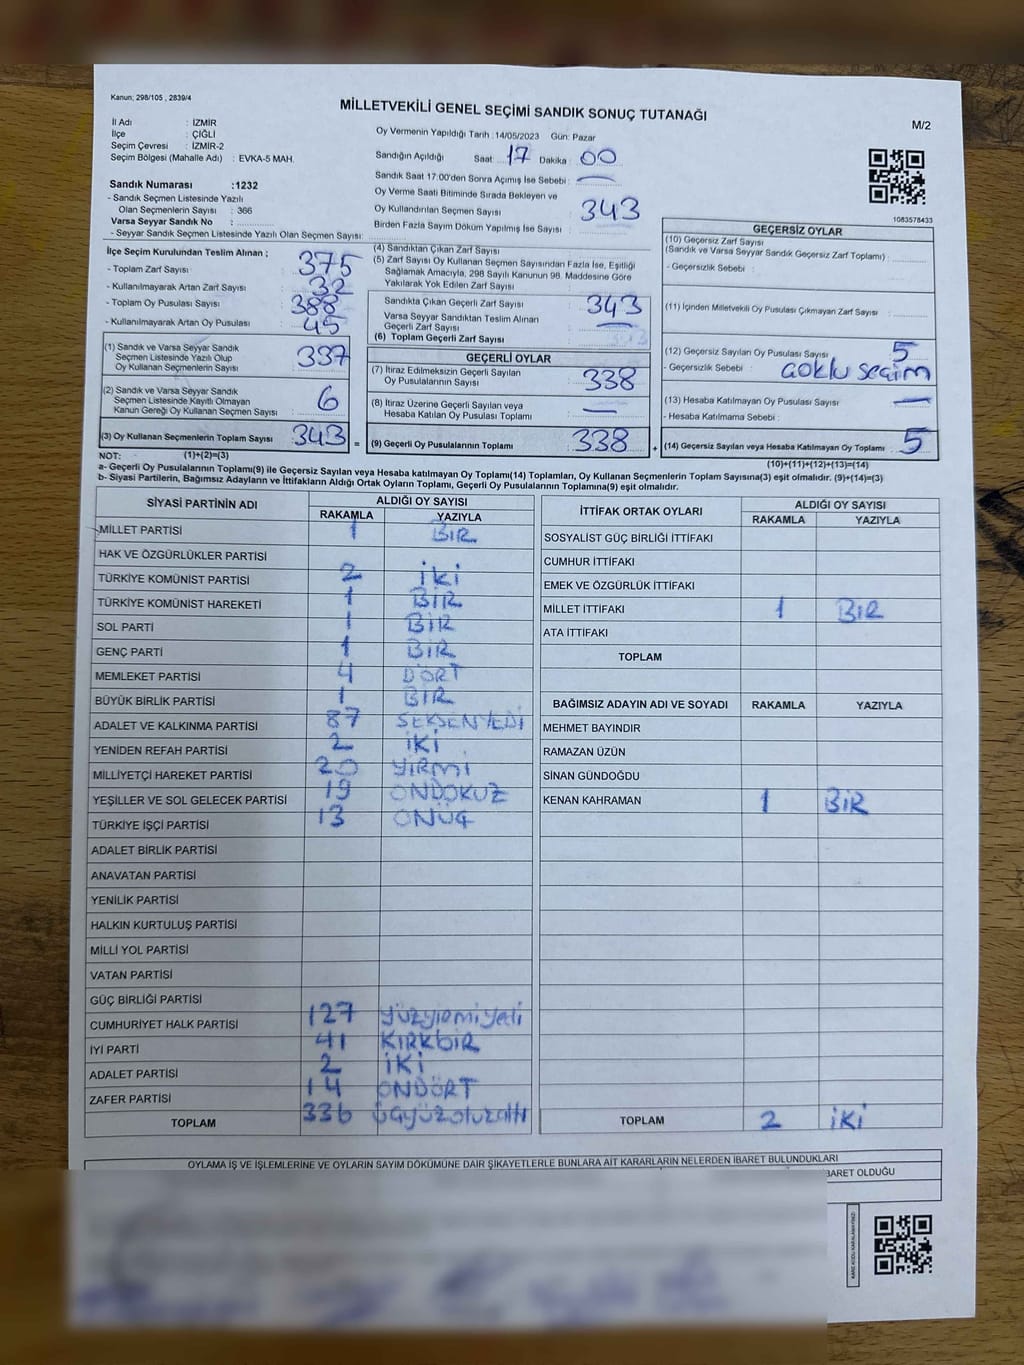 Kanun; 298/105 , 2839/4
MİLLETVEKİLİ GENEL SEÇİMİ SANDIK SONUÇ TUTANAĞI
M/2
İl Adı : İZMİR
İlçe : ÇİĞLİ
Seçim Çevresi : İZMİR-2
Seçim Bölgesi (Mahalle Adı) : EVKA-5 MAH.
Oy Vermenin Yapıldığı Tarih :14/05/2023 Gün: Pazar
Sandığın Açıldığı Saat: 17 Dakika : 00
Sandık Saat 17:00'den Sonra Açımış İse Sebebi : —
Oy Verme Saati Bitiminde Sırada Bekleyen ve
Oy Kullandırılan Seçmen Sayısı : 343
Birden Fazla Sayım Döküm Yapılmış İse Sayısı :
1083578433
Sandık Numarası :1232
- Sandık Seçmen Listesinde Yazılı
Olan Seçmenlerin Sayısı : 366
Varsa Seyyar Sandık No :
- Seyyar Sandık Seçmen Listesinde Yazılı Olan Seçmen Sayısı:
İlçe Seçim Kurulundan Teslim Alınan ;
- Toplam Zarf Sayısı : 375
- Kullanılmayarak Artan Zarf Sayısı : 32
- Toplam Oy Pusulası Sayısı : 388
- Kullanılmayarak Artan Oy Pusulası : 45
(1) Sandık ve Varsa Seyyar Sandık
Seçmen Listesinde Yazılı Olup
Oy Kullanan Seçmenlerin Sayısı : 337
(2) Sandık ve Varsa Seyyar Sandık
Seçmen Listesinde Kayıtlı Olmayan
Kanun Gereği Oy Kullanan Seçmen Sayısı : 6
(3) Oy Kullanan Seçmenlerin Toplam Sayısı : 343 =
(4) Sandıktan Çıkan Zarf Sayısı
(5) Zarf Sayısı Oy Kullanan Seçmen Sayısından Fazla İse, Eşitliği
Sağlamak Amacıyla, 298 Sayılı Kanunun 98. Maddesine Göre
Yakılarak Yok Edilen Zarf Sayısı :
Sandıkta Çıkan Geçerli Zarf Sayısı : 343
Varsa Seyyar Sandıktan Teslim Alınan
Geçerli Zarf Sayısı : —
(6) Toplam Geçerli Zarf Sayısı :
GEÇERLİ OYLAR
(7) İtiraz Edilmeksizin Geçerli Sayılan
Oy Pusulalarının Sayısı : 338
(8) İtiraz Üzerine Geçerli Sayılan veya
Hesaba Katılan Oy Pusulası Toplamı : —
(9) Geçerli Oy Pusulalarının Toplamı : 338 +
GEÇERSİZ OYLAR
(10) Geçersiz Zarf Sayısı
(Sandık ve Varsa Seyyar Sandık Geçersiz Zarf Toplamı) :
- Geçersizlik Sebebi :
(11) İçinden Milletvekili Oy Pusulası Çıkmayan Zarf Sayısı :
(12) Geçersiz Sayılan Oy Pusulası Sayısı : 5
- Geçersizlik Sebebi : çoklu seçim
(13) Hesaba Katılmayan Oy Pusulası Sayısı : —
- Hesaba Katılmama Sebebi :
(14) Geçersiz Sayılan veya Hesaba Katılmayan Oy Toplamı : 5
NOT: (1)+(2)=(3)
(10)+(11)+(12)+(13)=(14)
a- Geçerli Oy Pusulasının Toplamı(9) ile Geçersiz Sayılan veya Hesaba katılmayan Oy Toplamı(14) Toplamları, Oy Kullanan Seçmenlerin Toplam Sayısına(3) eşit olmalıdır. (9)+(14)=(3)
b- Siyasi Partilerin, Bağımsız Adayların ve İttifakların Aldığı Ortak Oyların Toplamı, Geçerli Oy Pusulalarının Toplamına(9) eşit olmalıdır.
SİYASİ PARTİNİN ADI ALDIĞI OY SAYISI
RAKAMLA YAZIYLA
MİLLET PARTİSİ 1 BİR
HAK VE ÖZGÜRLÜKLER PARTİSİ
TÜRKİYE KOMÜNİST PARTİSİ 2 İKİ
TÜRKİYE KOMÜNİST HAREKETİ 1 BİR
SOL PARTİ 1 BİR
GENÇ PARTİ 1 BİR
MEMLEKET PARTİSİ 4 DÖRT
BÜYÜK BİRLİK PARTİSİ 1 BİR
ADALET VE KALKINMA PARTİSİ 87 SEKSENYEDİ
YENİDEN REFAH PARTİSİ 2 İKİ
MİLLİYETÇİ HAREKET PARTİSİ 20 YİRMİ
YEŞİLLER VE SOL GELECEK PARTİSİ 19 ONDOKUZ
TÜRKİYE İŞÇİ PARTİSİ 13 ONÜÇ
ADALET BİRLİK PARTİSİ
ANAVATAN PARTİSİ
YENİLİK PARTİSİ
HALKIN KURTULUŞ PARTİSİ
MİLLİ YOL PARTİSİ
VATAN PARTİSİ
GÜÇ BİRLİĞİ PARTİSİ
CUMHURİYET HALK PARTİSİ 127 yüzyirmiyedi
İYİ PARTİ 41 KIRKbİR
ADALET PARTİSİ 2 İKİ
ZAFER PARTİSİ 14 ONDÖRT
TOPLAM 336 üçyüzotuzaltı
İTTİFAK ORTAK OYLARI ALDIĞI OY SAYISI
RAKAMLA YAZIYLA
SOSYALİST GÜÇ BİRLİĞİ İTTİFAKI
CUMHUR İTTİFAKI
EMEK VE ÖZGÜRLÜK İTTİFAKI
MİLLET İTTİFAKI 1 BİR
ATA İTTİFAKI
TOPLAM
BAĞIMSIZ ADAYIN ADI VE SOYADI RAKAMLA YAZIYLA
MEHMET BAYINDIR
RAMAZAN ÜZÜN
SİNAN GÜNDOĞDU
KENAN KAHRAMAN 1 BİR
TOPLAM 2 İKİ
OYLAMA İŞ VE İŞLEMLERİNE VE OYLARIN SAYIM DÖKÜMÜNE DAİR ŞİKAYETLERLE BUNLARA AİT KARARLARIN NELERDEN İBARET BULUNDUKLARI
BARET OLDUĞU